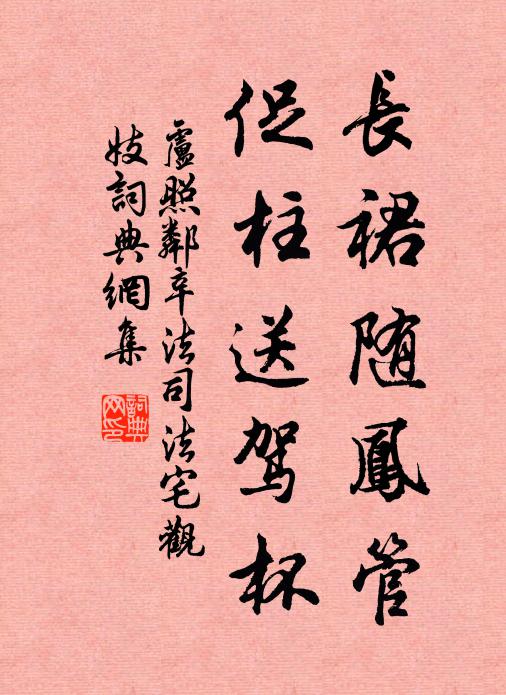 長裙随鳳管
促柱送駕杯
盧照鄰辛法司法宅觀
妓詞典網集
詞典网印